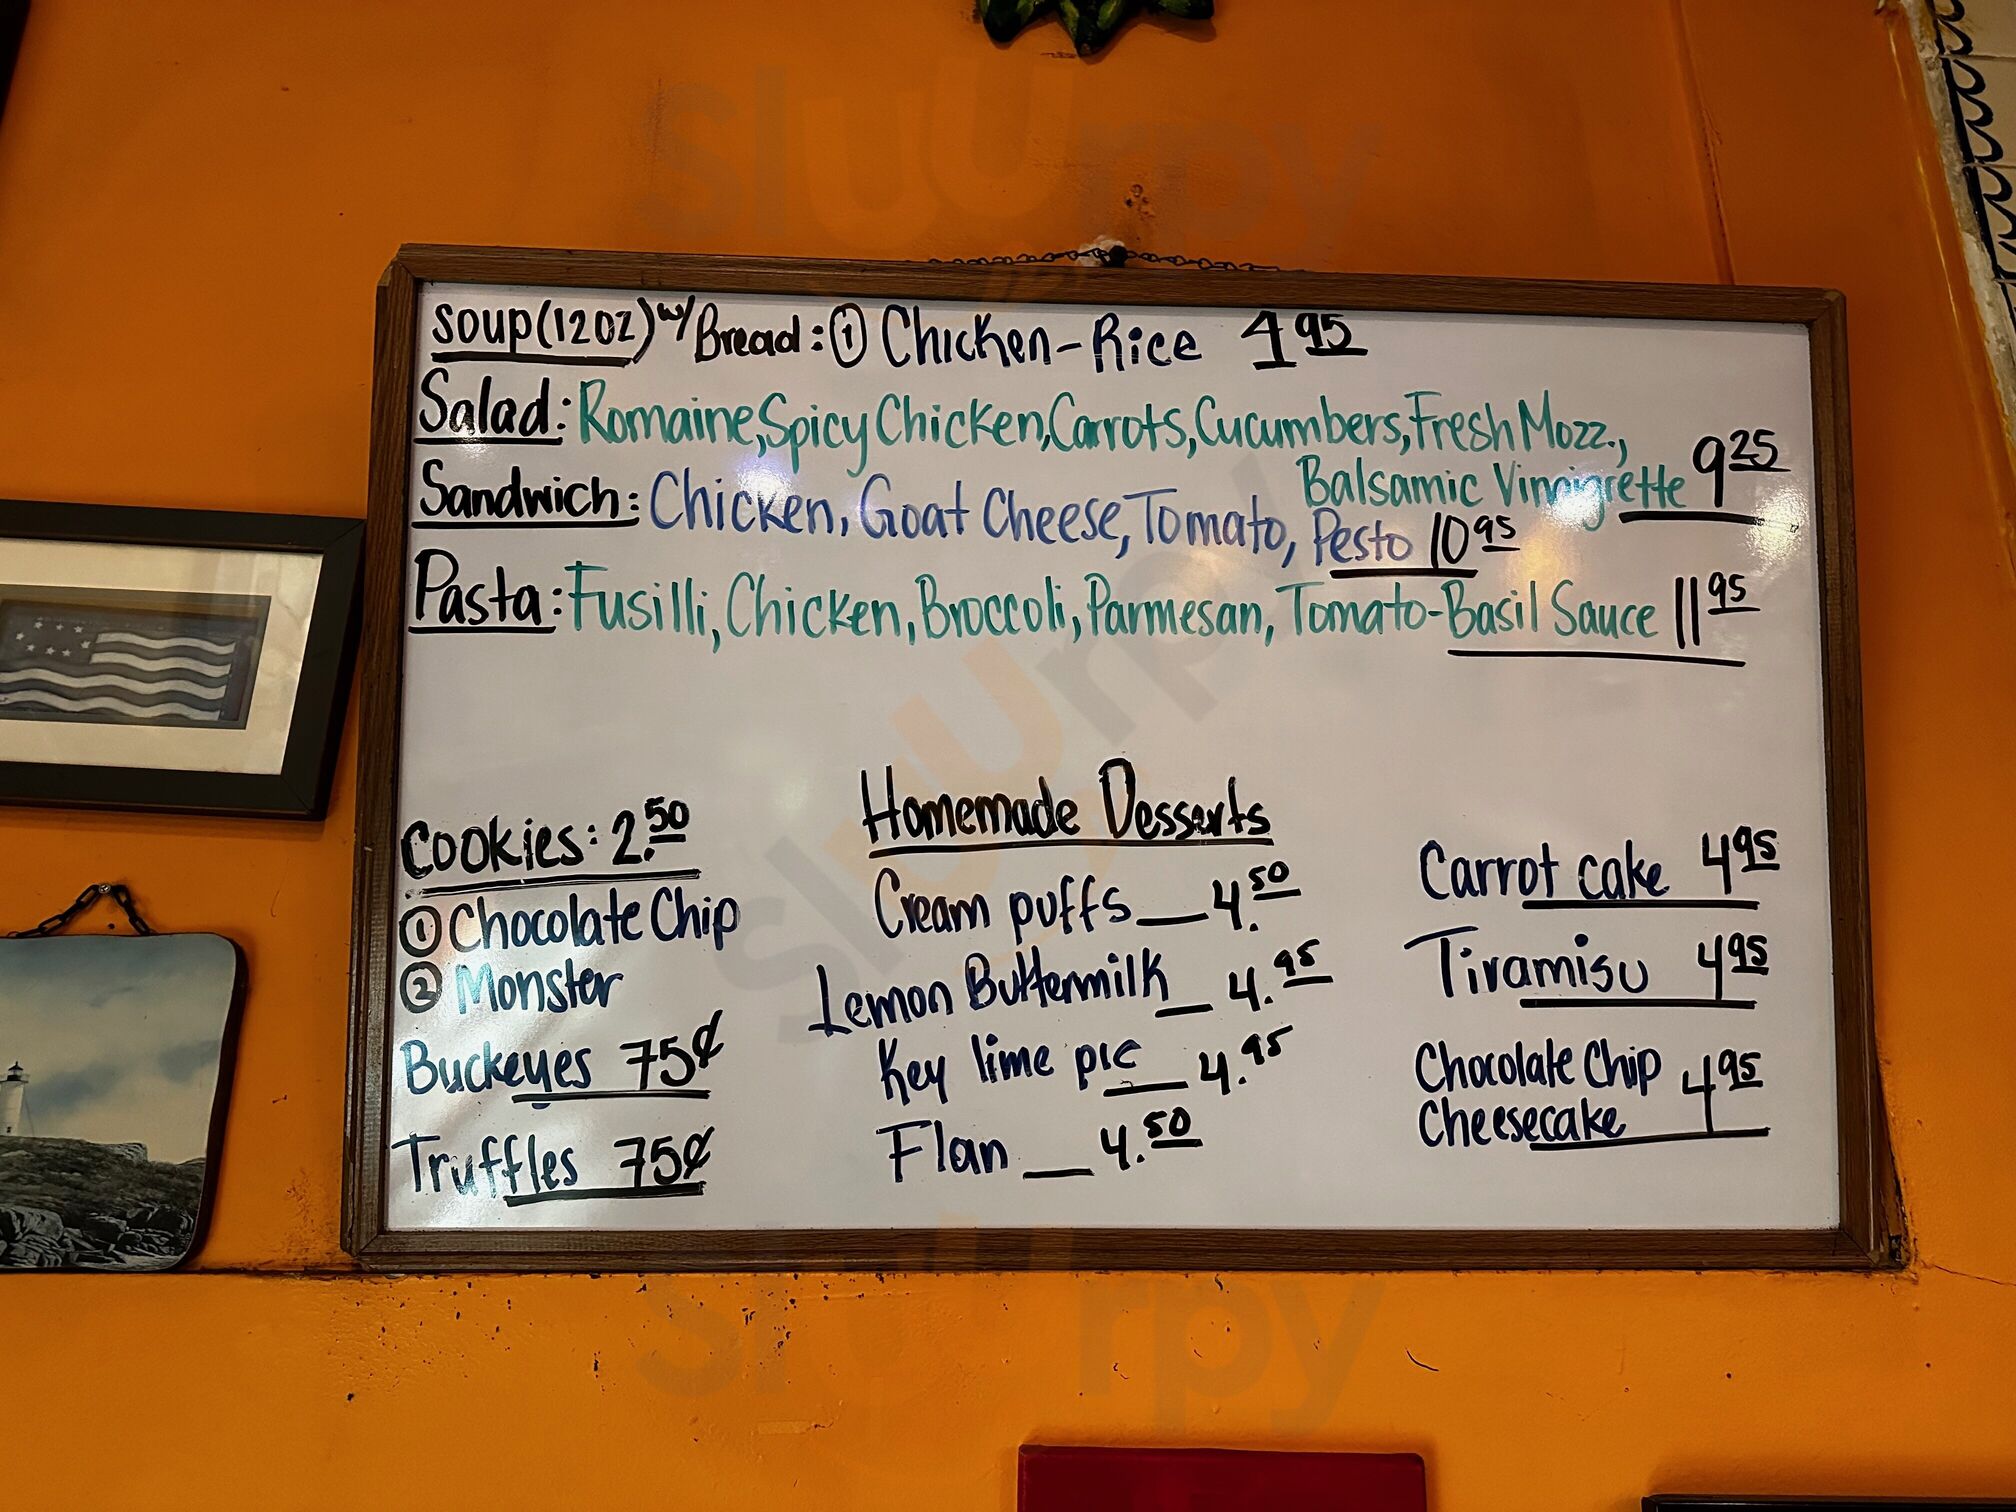 Soup (12oz) w/ Bread: ① Chicken-Rice 4.95
Salad: Romaine, Spicy Chicken, Carrots, Cucumbers, Fresh Mozz.,
Balsamic Vinaigrette 9.25
Sandwich: Chicken, Goat Cheese, Tomato, Pesto 10.95
Pasta: Fusilli, Chicken, Broccoli, Parmesan, Tomato-Basil Sauce 11.95
Cookies: 2.50
① Chocolate Chip
② Monster
Buckeyes 75¢
Truffles 75¢
Homemade Desserts
Cream puffs __ 4.50
Lemon Buttermilk __ 4.95
Key lime pie __ 4.95
Flan __ 4.50
Carrot cake 4.95
Tiramisu 4.95
Chocolate Chip
Cheesecake 4.95
Sluurpy
Sluurpy
Sluurpy